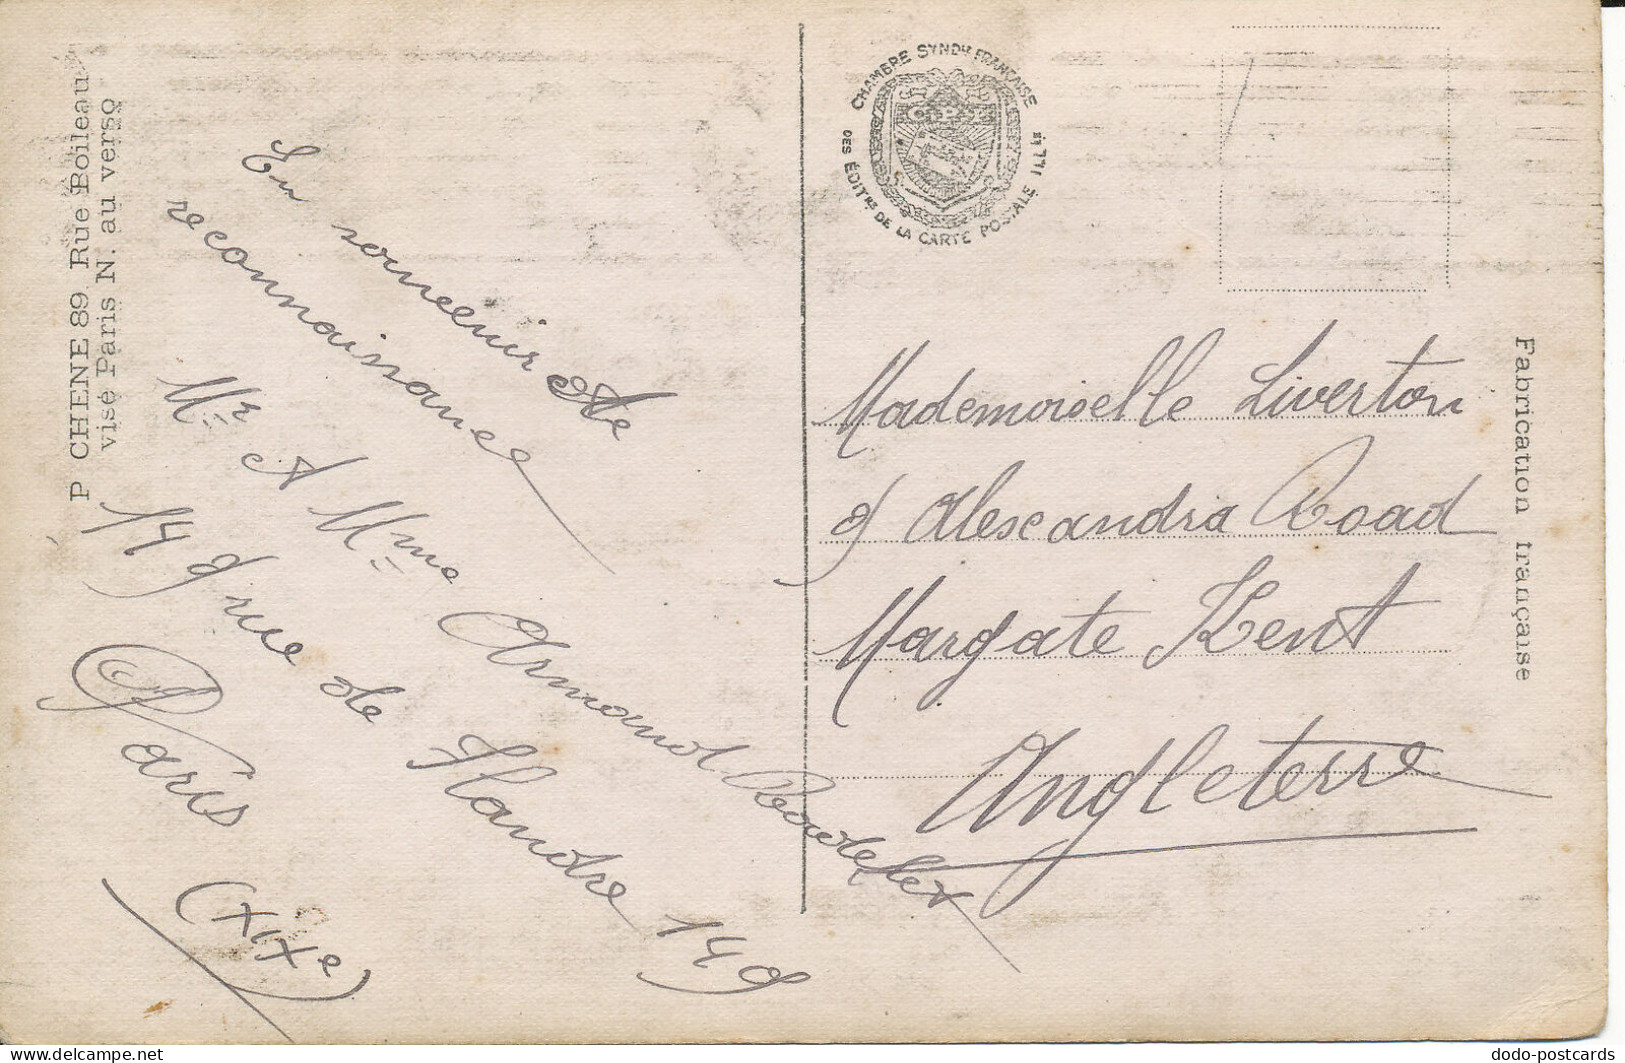 P CHENE 89 Rue Boileau
visé Paris N. au verso
En souveenir de
reconnaissance
Mr A Mme Armand
149 rue de Flandre 149
Paris
(XIXe)
CHAMBRE SYNDle FRANÇAISE
DES ÉDITrs DE LA CARTE POSTALE ILLée
C.P.I.
Mademoiselle Liverton
9 Alexandra Road
Margate Kent
Angleterre
Fabrication française
delcampe.net
dodo-postcards